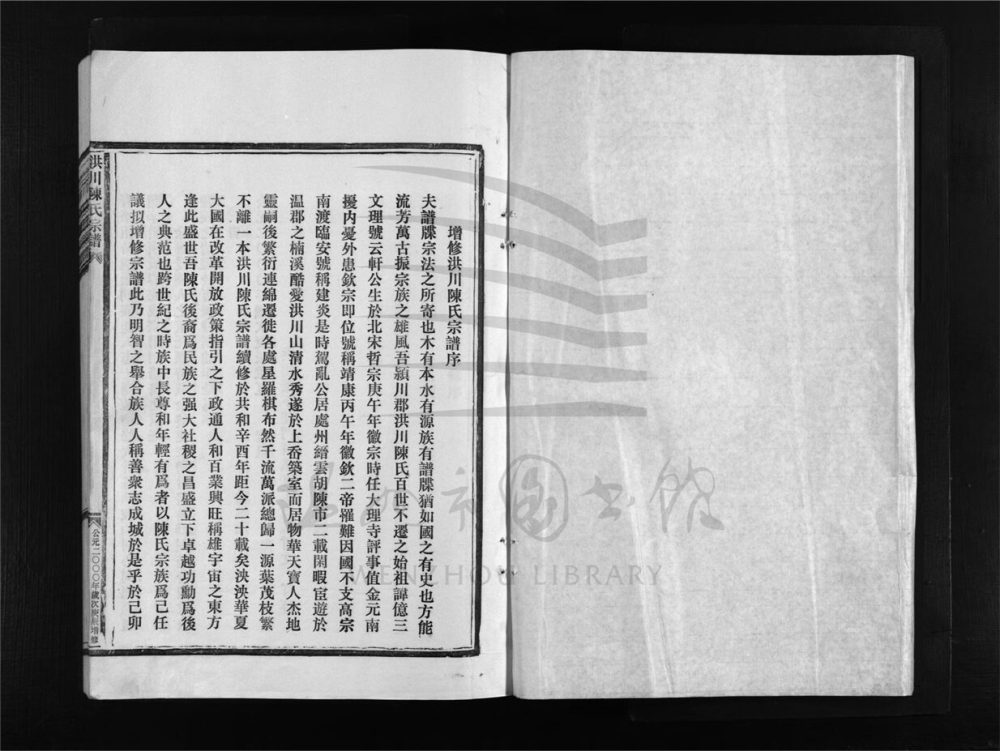 增修洪川陳氏宗譜序
夫譜牒宗法之所寄也木有本水有源族有譜牒猶如國之有史也方能
流芳萬古振宗族之雄風吾潁川郡洪川陳氏百世不遷之始祖諱億三
文理號云軒公生於北宋哲宗庚午年徽宗時任大理寺評事值金元南
擾內憂外患欽宗即位號稱靖康丙午年徽欽二帝罹難因國不支高宗
南渡臨安號稱建炎是時駕亂公居處州縉雲胡陳市二載閑暇宦遊於
温郡之楠溪酷愛洪川山清水秀遂於上岙築室而居物華天寶人杰地
靈嗣後繁衍連綿遷徙各處星羅棋布然千流萬派總歸一源葉茂枝繁
不離一本洪川陳氏宗譜續修於共和辛酉年距今二十載矣泱泱華夏
大國在改革開放政策指引之下政通人和百業興旺稱雄宇宙之東方
逢此盛世吾陳氏後裔爲民族之强大社稷之昌盛立下卓越功勳爲後
人之典范也跨世紀之時族中長尊和年輕有爲者以陳氏宗族爲己任
議拟增修宗譜此乃明智之舉合族人人稱善衆志成城於是乎於己卯
洪川陳氏宗譜
公元二〇〇〇年歲次庚辰增修
溫州市圖書館
WENZHOU LIBRARY